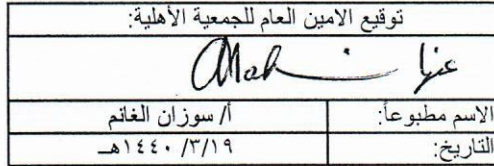 توقيع الامين العام للجمعية الأهلية:
الاسم مطبوعاً: أ/ سوزان الغانم
التاريخ: ١٤٤٠/٣/١٩هـ